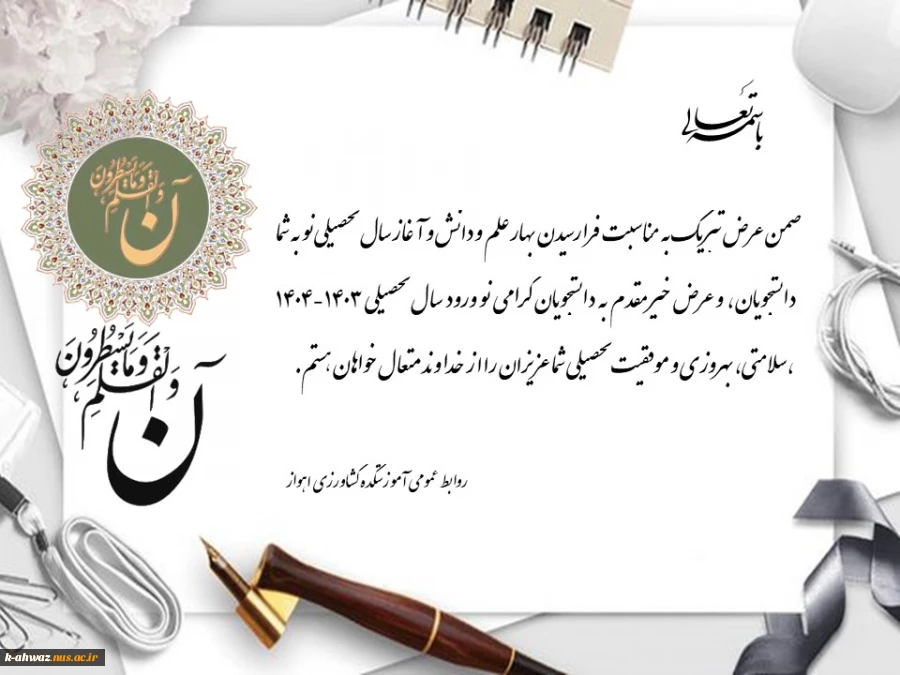 باسمه تعالی
ضمن عرض تبریک به مناسبت فرارسیدن بهار علم و دانش و آغاز سال تحصیلی نو به شما
دانشجویان، و عرض خیرمقدم به دانشجویان گرامی نو ورود سال تحصیلی ۱۴۰۳-۱۴۰۴
،سلامتی، بهروزی و موفقیت تحصیلی شما عزیزان را از خداوند متعال خواهان هستم.
روابط عمومی آموزشکده کشاورزی اهواز
ن وَالْقَلَمِ وَمَا يَسْطُرُونَ
ن وَالْقَلَمِ وَمَا يَسْطُرُونَ
k-ahwaz.nus.ac.ir